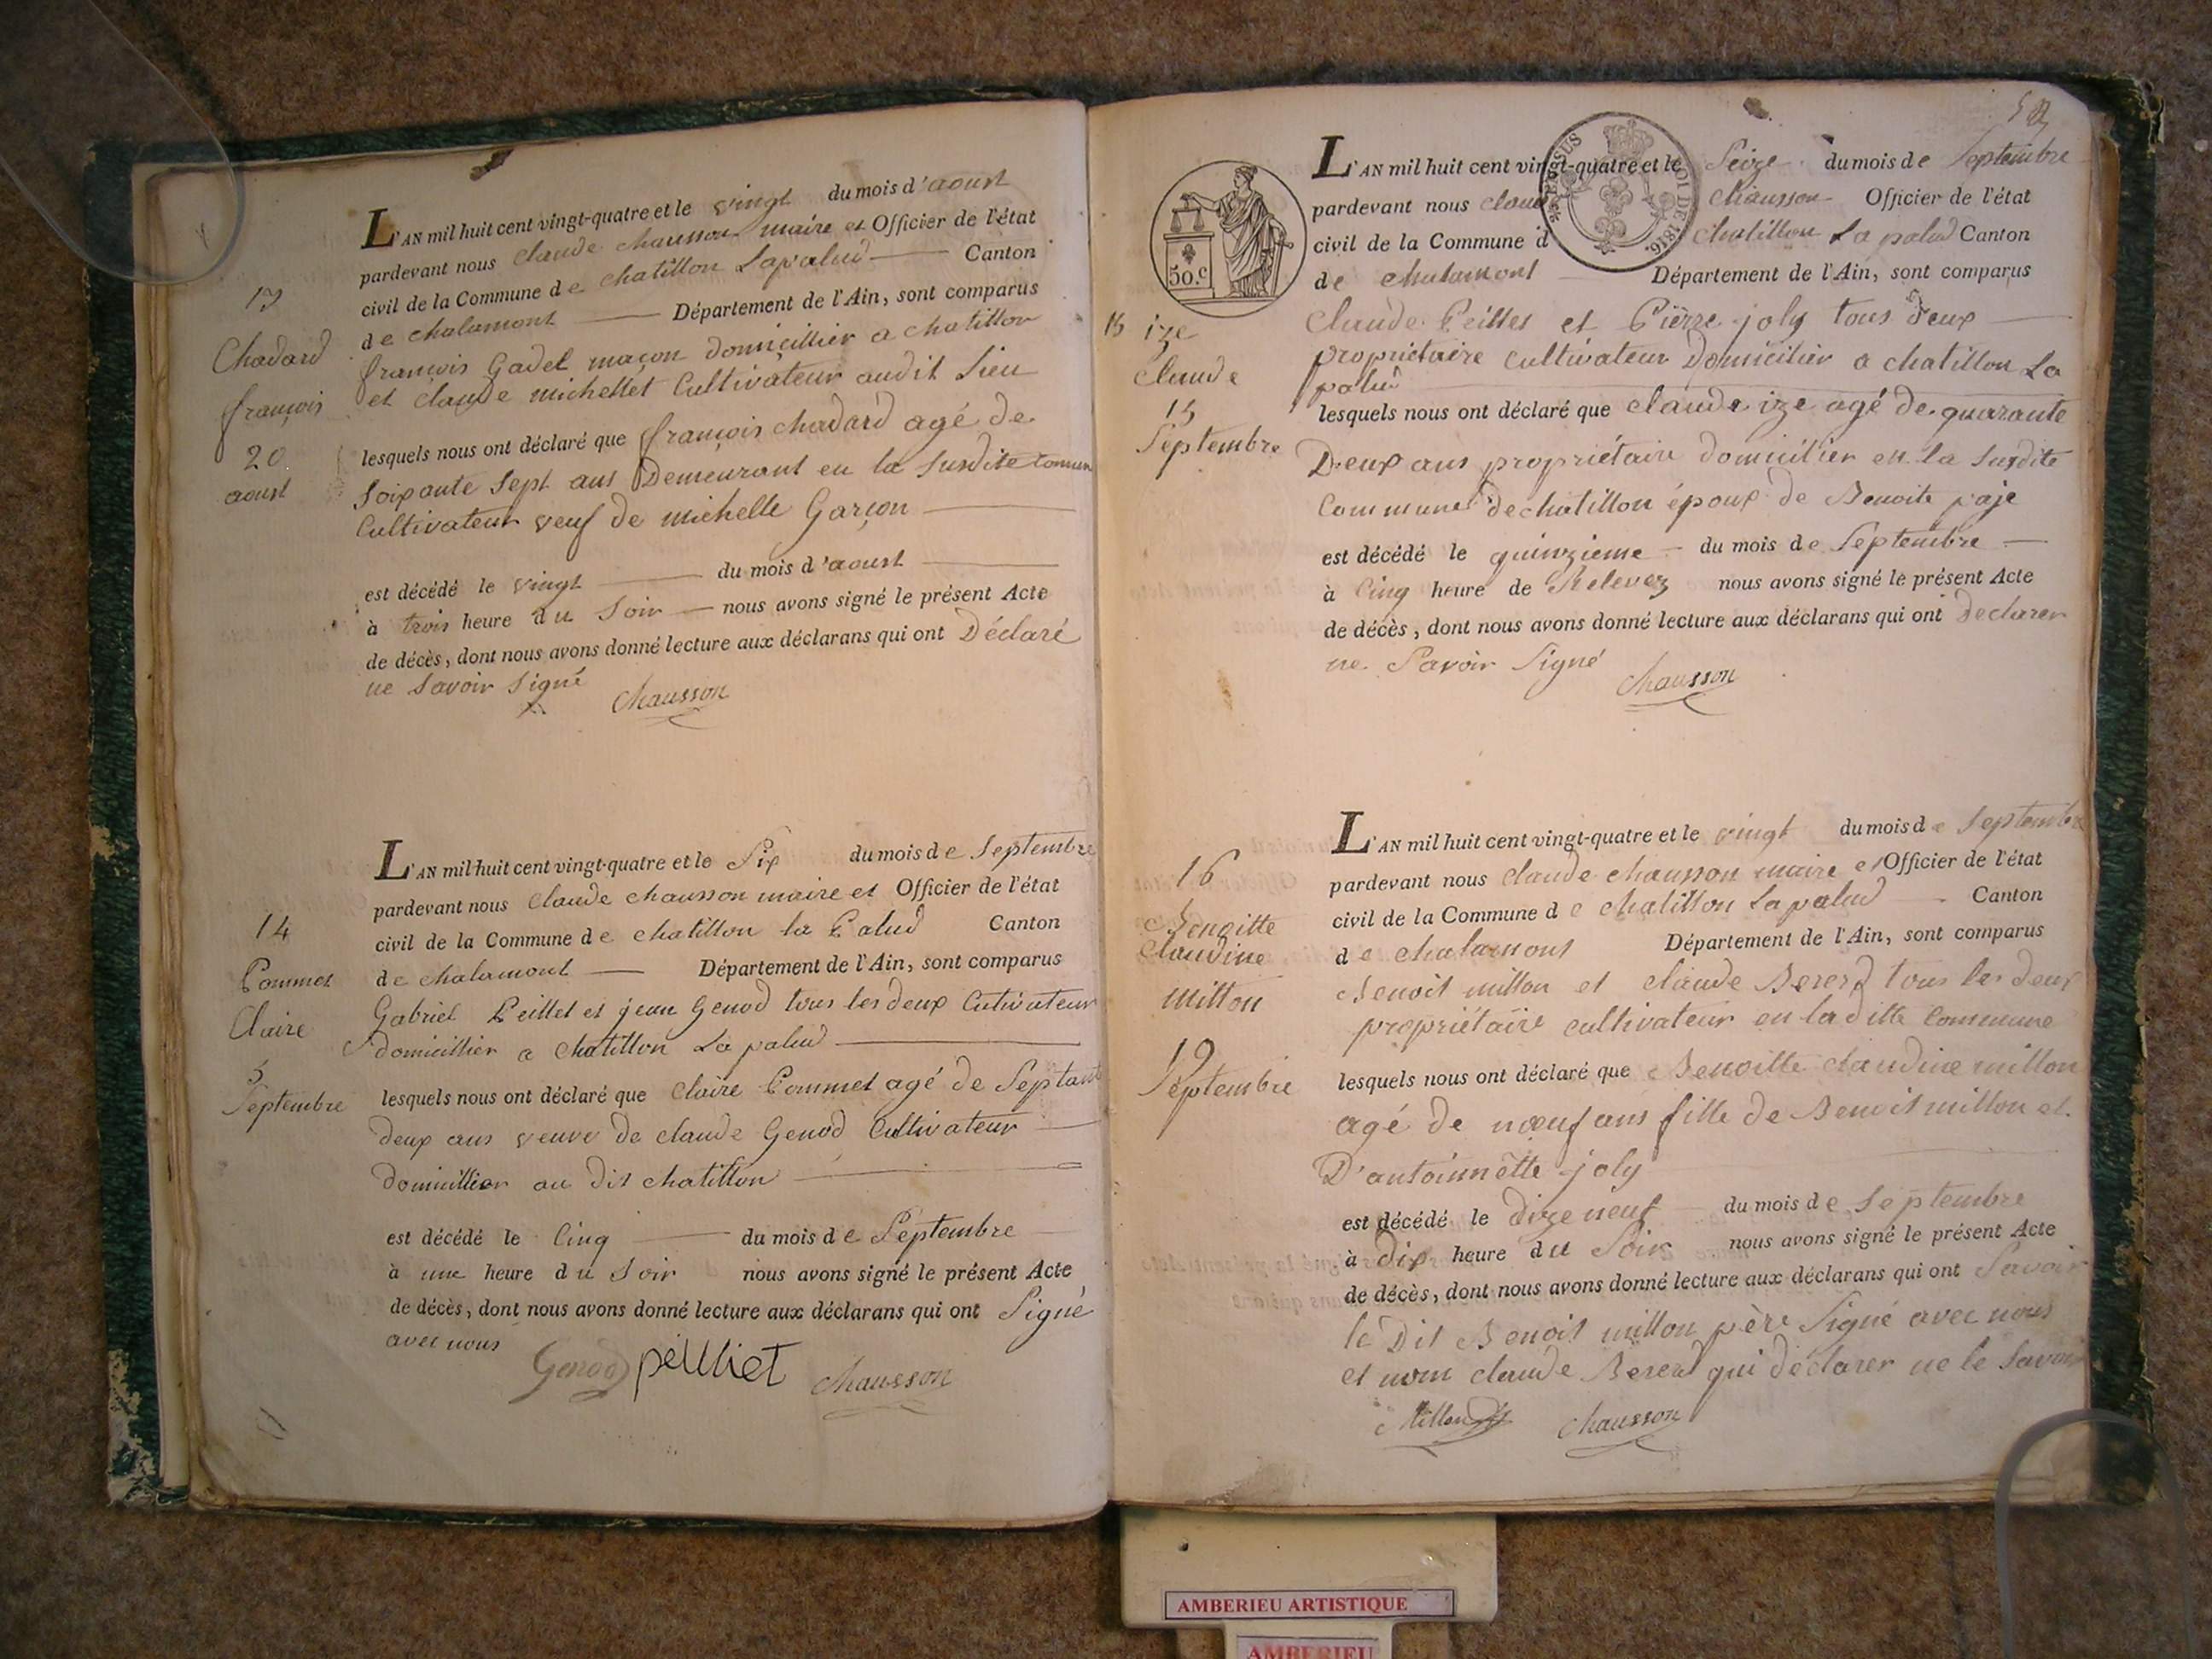 13
Chadard
françois
20
aoust
L'AN mil huit cent vingt-quatre et le vingt du mois d'aoust
pardevant nous Claude Chausson maire et Officier de l'état
civil de la Commune de chatillon Lapalud Canton
de chalamont Département de l'Ain, sont comparus
françois Gadel maçon domicillier a chatillon
et claude michellet Cultivateur audit Lieu
lesquels nous ont déclaré que françois chadard agé de
Soixante Sept ans Demeurant en la Susdite Commun
Cultivateur veuf de michelle Garçon
est décédé le vingt du mois d'aoust
à trois heure du Soir nous avons signé le présent Acte
de décès, dont nous avons donné lecture aux déclarans qui ont Déclaré
ne Savoir Signé
Chausson
14
Pommet
Claire
5
Septembre
L'AN mil huit cent vingt-quatre et le Six du mois de Septembre
pardevant nous Claude Chausson maire et Officier de l'état
civil de la Commune de chatillon la Palud Canton
de chalamont Département de l'Ain, sont comparus
Gabriel Peillet et jean Genod tous les deux Cutivateur
domicillier a Chatillon La palud
lesquels nous ont déclaré que Claire Pommet agé de Septant
deux ans veuve de claude Genod Cultivateur
domicillier au dit chatillon
est décédé le Cinq du mois de Septembre
à une heure du Soir nous avons signé le présent Acte
de décès, dont nous avons donné lecture aux déclarans qui ont Signé
avec nous
Genod peilliet Chausson
50.c
15 ize
Claude
15
Septembre
L'AN mil huit cent vingt-quatre et le Seize du mois de Septembre
pardevant nous Claud Chausson Officier de l'état
civil de la Commune d chatillon La palud Canton
de chalamont Département de l'Ain, sont comparus
Claude Peilles et Pierre joly tous deux
propriétaire cultivateur Domicilier a chatillon La
palud
lesquels nous ont déclaré que claude ize agé de quarante
Deux ans propriétaire domicilier en la Susdite
Commune de chatillon époux de Benoite paje
est décédé le quinzieme du mois de Septembre
à Cinq heure de Relevez nous avons signé le présent Acte
de décès, dont nous avons donné lecture aux déclarans qui ont declarer
ne Savoir Signé
Chausson
16
Benoitte
Claudine
millon
19
Septembre
L'AN mil huit cent vingt-quatre et le vingt du mois de Septembre
pardevant nous Claude Chausson maire et Officier de l'état
civil de la Commune de chatillon Lapalud Canton
de chalamont Département de l'Ain, sont comparus
Benoit millon et claude Bererd tous les deux
propriétaire cultivateur en la ditte Commune
lesquels nous ont déclaré que Benoitte Claudine millon
agé de nœuf ans fille de Benoit millon et
D'antoinnette joly
est décédé le dize neuf du mois de Septembre
à dix heure du Soir nous avons signé le présent Acte
de décès, dont nous avons donné lecture aux déclarans qui ont Savoir
le Dit Benoit millon père Signé avec nous
et non claude Bererd qui déclarer ne le Savoir
Millon Chausson
AMBERIEU ARTISTIQUE
AMBERIEU